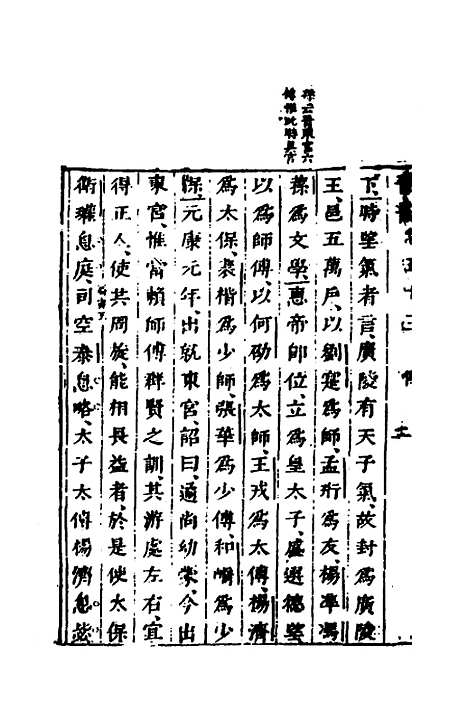 孫云晉東宮六
傅惟此時具官
晉書卷五十三 傳 二
下時望氣者言廣陵有天子氣故封爲廣陵
王邑五萬戶以劉寔爲師孟珩爲友楊準馮
蓀爲文學惠帝卽位立爲皇太子盛選德望
以爲師傅以何劭爲太師王戎爲太傅楊濟
爲太保裴楷爲少師張華爲少傅和嶠爲少
保元康元年出就東宮詔曰遹尚幼蒙今出
東宮惟當賴師傅群賢之訓其游處左右宜
得正人使共周旋能相長益者於是使太保
衛瓘息庭司空泰息略太子太傅楊濟息毖